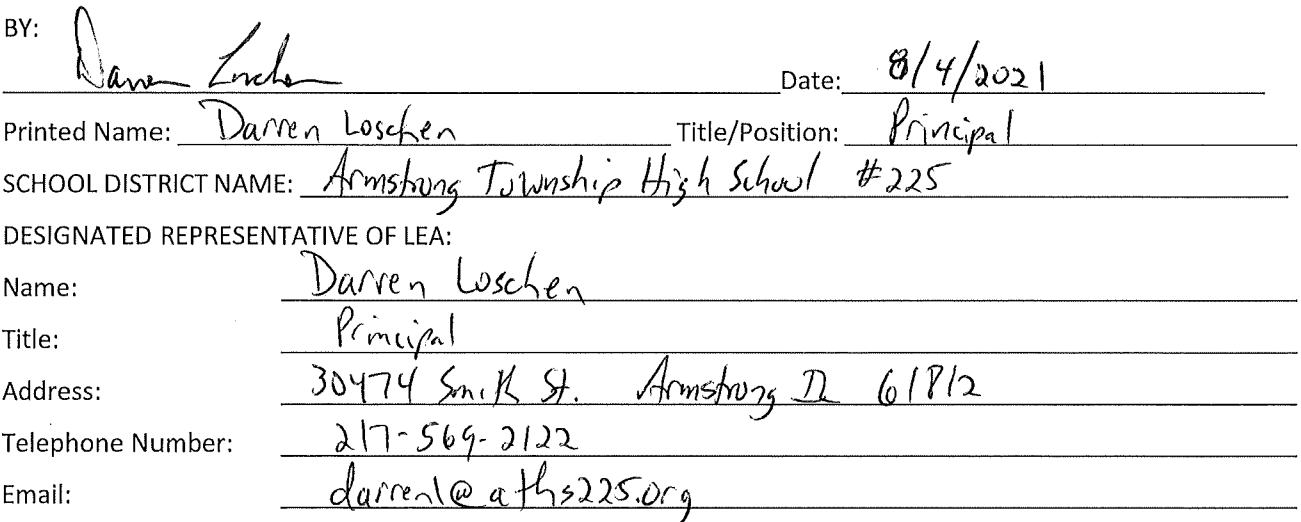 BY: Darren Loschen Date: 8/4/2021
Printed Name: Darren Loschen Title/Position: Principal
SCHOOL DISTRICT NAME: Armstrong Township High School #225
DESIGNATED REPRESENTATIVE OF LEA:
Name: Darren Loschen
Title: Principal
Address: 30474 Smith St. Armstrong IL 61812
Telephone Number: 217-569-2122
Email: darrenl@aths225.org